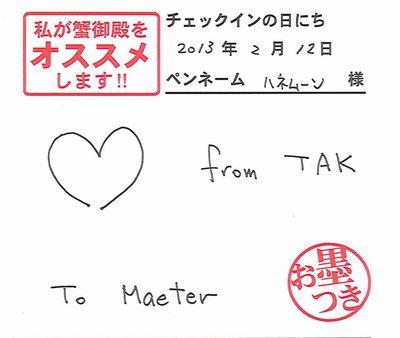 私が蟹御殿を
オススメ
します!!
チェックインの日にち
2013年2月12日
ペンネーム ハネムーン 様
from TAK
To Maeter
お墨
つき